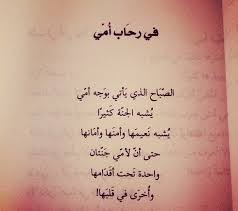 في رحَاب أمّي
الصّبَاح الذي يَأتي بوَجه أمّي
يُشبه الجنّة كَثيرًا
يُشبه نَعيمهَا وأمنَها وأمَانها
حتى أنّ لأمّي جَنّتان
واحدة تحت أقدَامها
وأخرَى في قلبَها!